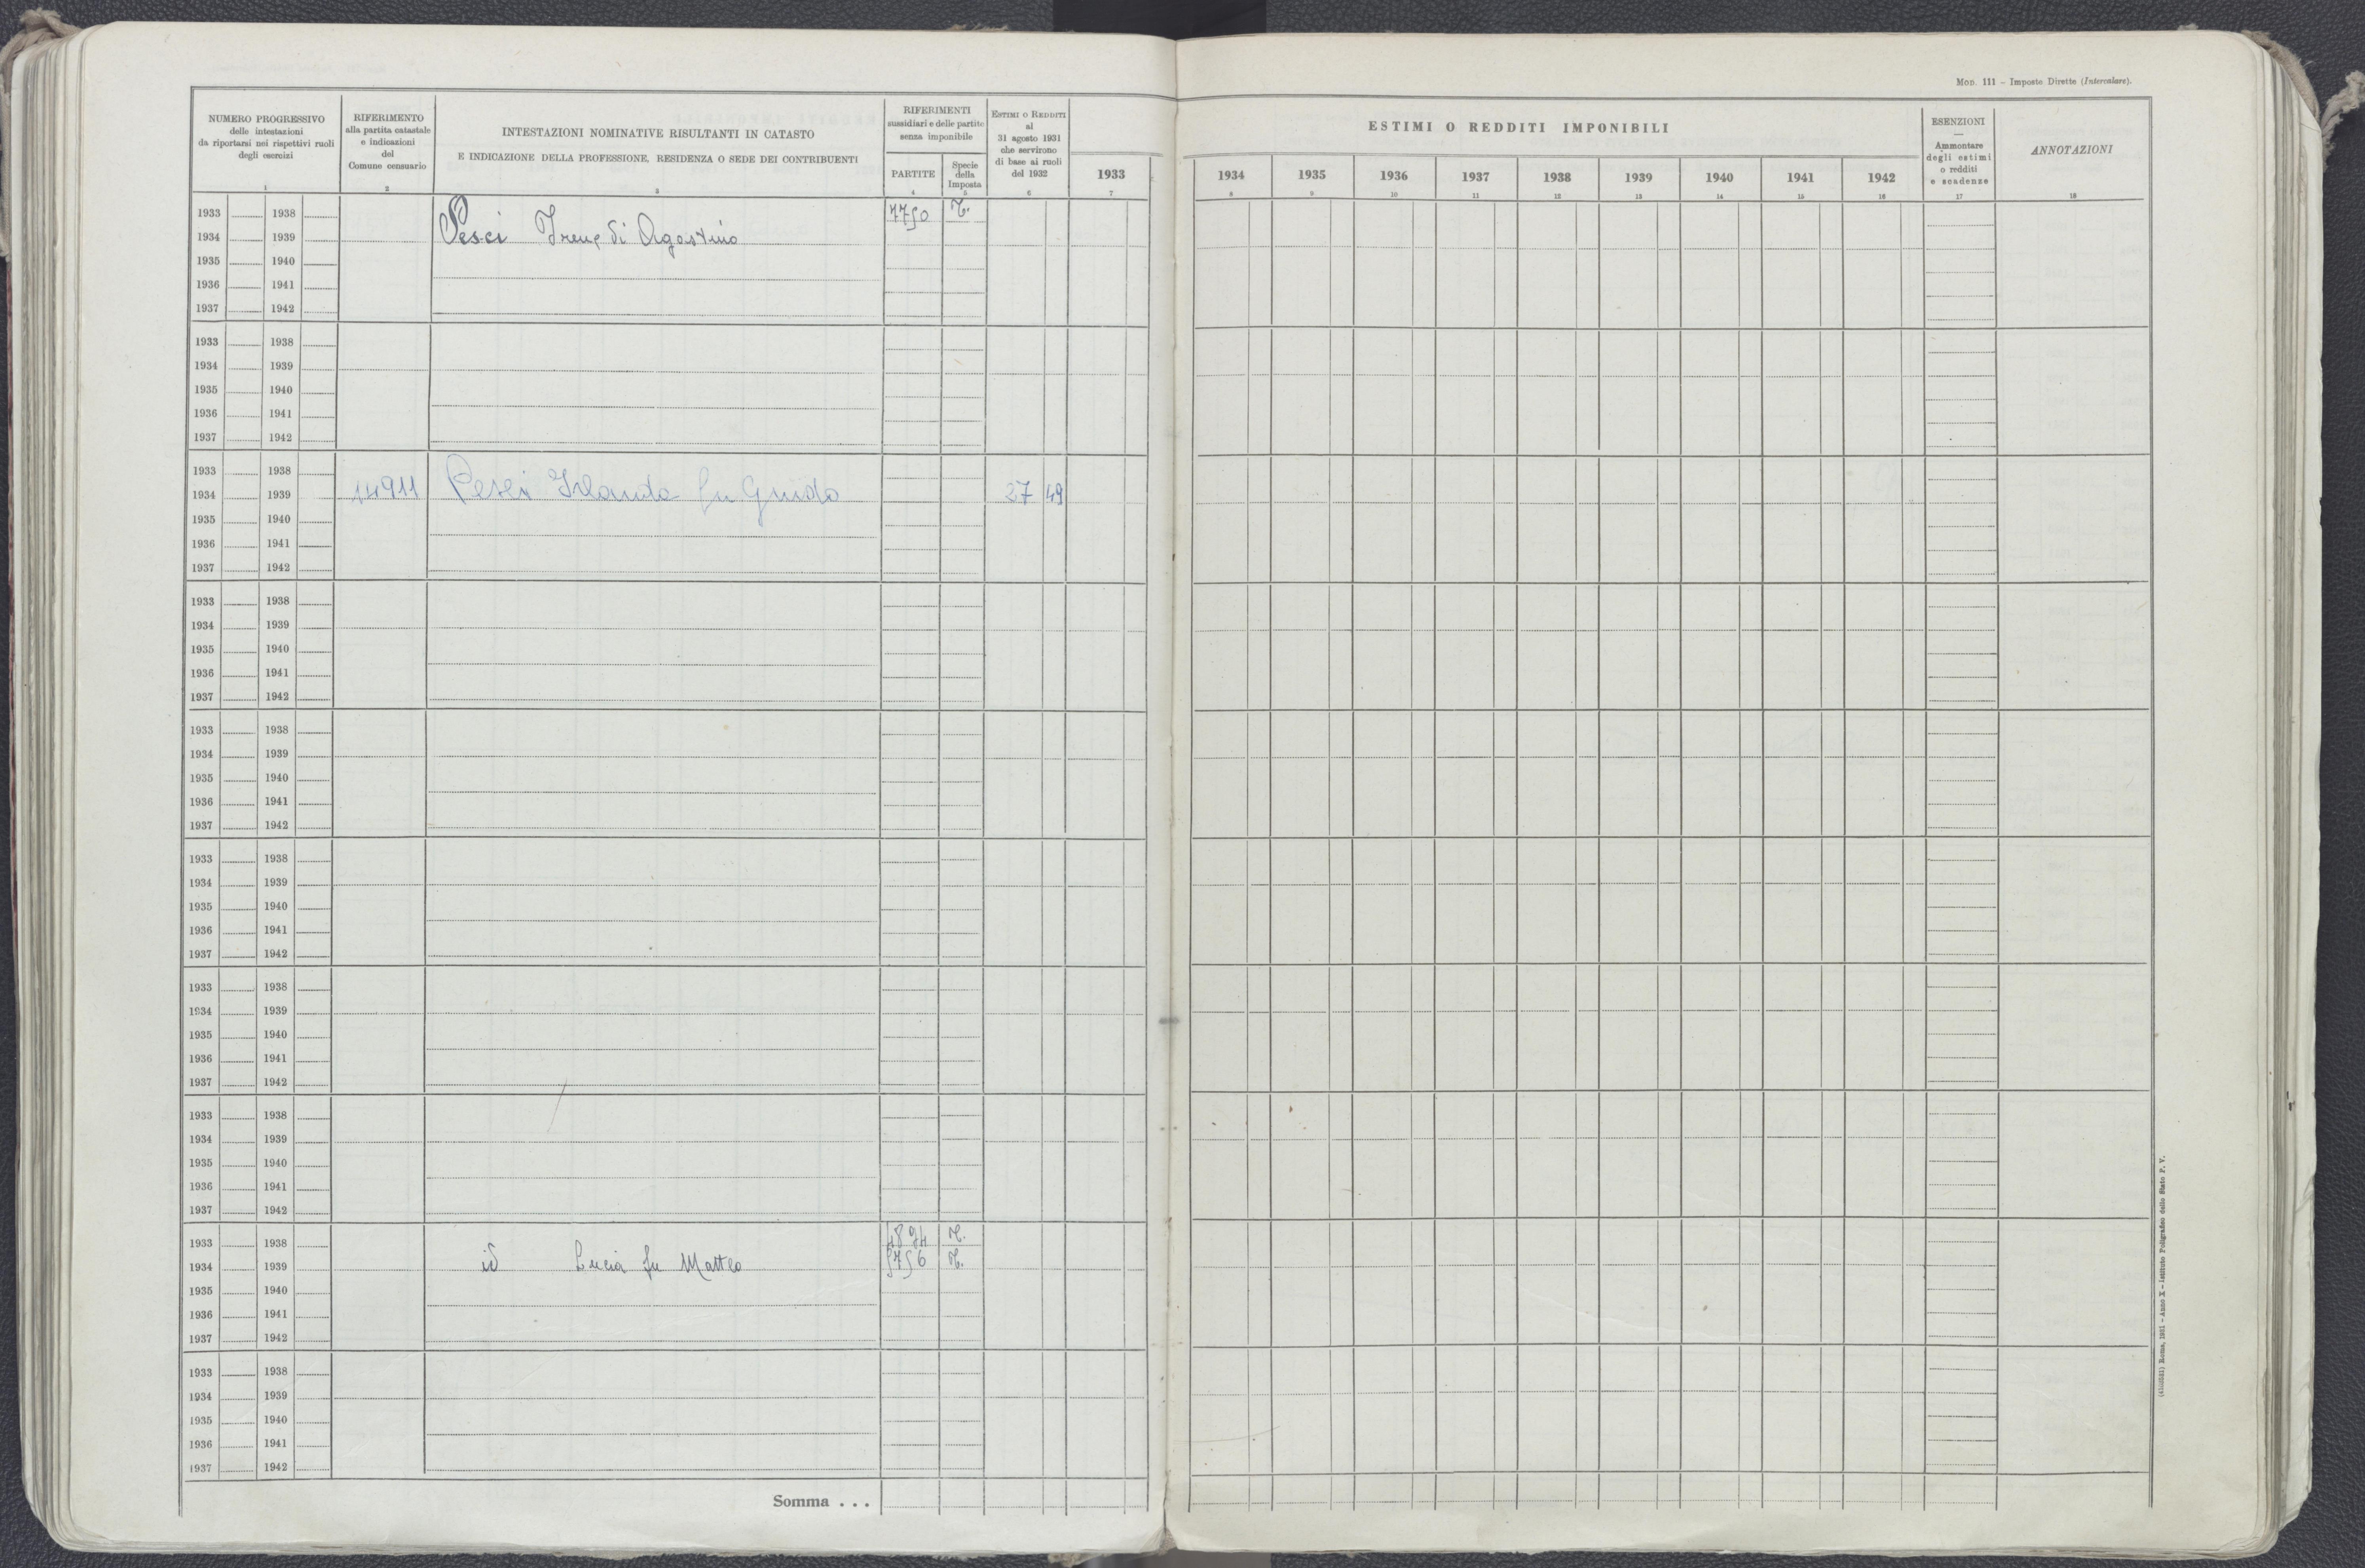 Mod. 111 – Imposte Dirette (Intercalare).
NUMERO PROGRESSIVO
delle intestazioni
da riportarsi nei rispettivi ruoli
degli esercizi
1
RIFERIMENTO
alla partita catastale
e indicazioni
del
Comune censuario
2
INTESTAZIONI NOMINATIVE RISULTANTI IN CATASTO
E INDICAZIONE DELLA PROFESSIONE, RESIDENZA O SEDE DEI CONTRIBUENTI
3
RIFERIMENTI
sussidiari e delle partite
senza imponibile
PARTITE
4
Specie
della
Imposta
5
ESTIMI O REDDITI
al
31 agosto 1931
che servirono
di base ai ruoli
del 1932
6
1933
7
ESTIMI O REDDITI IMPONIBILI
1934 1935 1936 1937 1938 1939 1940 1941 1942
8 9 10 11 12 13 14 15 16
ESENZIONI
—
Ammontare
degli estimi
o redditi
e scadenze
17
ANNOTAZIONI
18
1933 1938 7750
1934 1939 Pesci Irene di Agostino
1935 1940
1936 1941
1937 1942
1933 1938
1934 1939
1935 1940
1936 1941
1937 1942
1933 1938
1934 1939 14911 Pesci Iolanda fu Guido 27 49
1935 1940
1936 1941
1937 1942
1933 1938
1934 1939
1935 1940
1936 1941
1937 1942
1933 1938
1934 1939
1935 1940
1936 1941
1937 1942
1933 1938
1934 1939
1935 1940
1936 1941
1937 1942
1933 1938
1934 1939
1935 1940
1936 1941
1937 1942
1933 1938
1934 1939
1935 1940
1936 1941
1937 1942
1933 1938
1934 1939 id Lucia fu Matteo 5756
1935 1940
1936 1941
1937 1942
1933 1938
1934 1939
1935 1940
1936 1941
1937 1942
Somma . . .
Roma, 1931 – Anno X – Istituto Poligrafico dello Stato P. V.